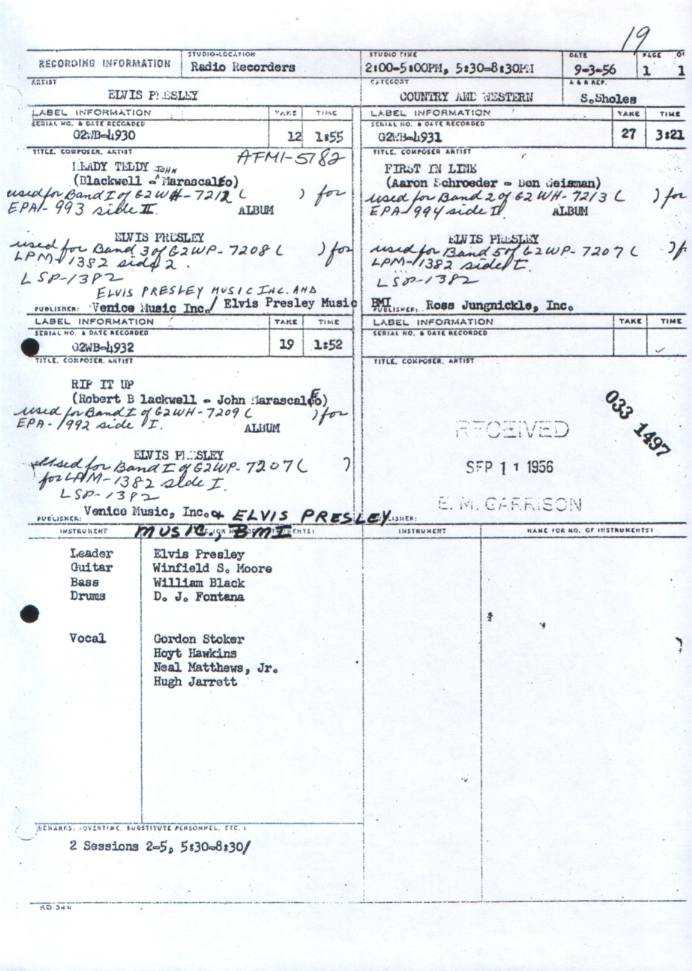 19
RECORDING INFORMATION
STUDIO-LOCATION
Radio Recorders
STUDIO TIME
2:00-5:00PM, 5:30-8:30PM
DATE
9-3-56
PAGE
1
OF
1
ARTIST
ELVIS PRESLEY
CATEGORY
COUNTRY AND WESTERN
A & R REP.
S.Sholes
LABEL INFORMATION
TAKE
TIME
SERIAL NO. & DATE RECORDED
G2WB-4930
12
1:55
TITLE, COMPOSER, ARTIST
AFM1-5182
READY TEDDY JOHN
(Blackwell - Marascalco)
used for Band I of G2WH-7212 ( ) for
EPA-993 side II ALBUM
ELVIS PRESLEY
used for Band 3 of G2WP-7208 ( ) for
LPM-1382 side 2.
LSP-1382
ELVIS PRESLEY MUSIC INC. AND
PUBLISHER: Venice Music Inc./ Elvis Presley Music
LABEL INFORMATION
TAKE
TIME
SERIAL NO. & DATE RECORDED
G2WB-4931
27
3:21
TITLE, COMPOSER, ARTIST
FIRST IN LINE
(Aaron Schroeder - Ben Weisman)
used for Band 2 of G2WH-7213 ( ) for
EPA-994 side II ALBUM
ELVIS PRESLEY
used for Band 5 of G2WP-7207 ( ) f
LPM-1382 side I.
LSP-1382
BMI
PUBLISHER: Ross Jungnickle, Inc.
LABEL INFORMATION
TAKE
TIME
SERIAL NO. & DATE RECORDED
G2WB-4932
19
1:52
TITLE, COMPOSER, ARTIST
RIP IT UP
(Robert B lackwell - John Marascalco)
used for Band I of G2WH-7209 ( ) for
EPA-992 side I. ALBUM
ELVIS PRESLEY
Used for Band I of G2WP-7207 ( )
for LPM-1382 side I.
LSP-1382
Venice Music, Inc. & ELVIS PRESLEY
PUBLISHER:
MUSIC, BMI
LABEL INFORMATION
TAKE
TIME
SERIAL NO. & DATE RECORDED
TITLE, COMPOSER, ARTIST
033 1497
RECEIVED
SEP 11 1956
E. M. GARRISON
INSTRUMENT
INSTRUMENT
NAME (OR NO. OF INSTRUMENTS)
Leader Elvis Presley
Guitar Winfield S. Moore
Bass William Black
Drums D. J. Fontana
Vocal Gordon Stoker
Hoyt Hawkins
Neal Matthews, Jr.
Hugh Jarrett
REMARKS: (OVERTIME, SUBSTITUTE PERSONNEL, ETC.)
2 Sessions 2-5, 5:30-8:30/